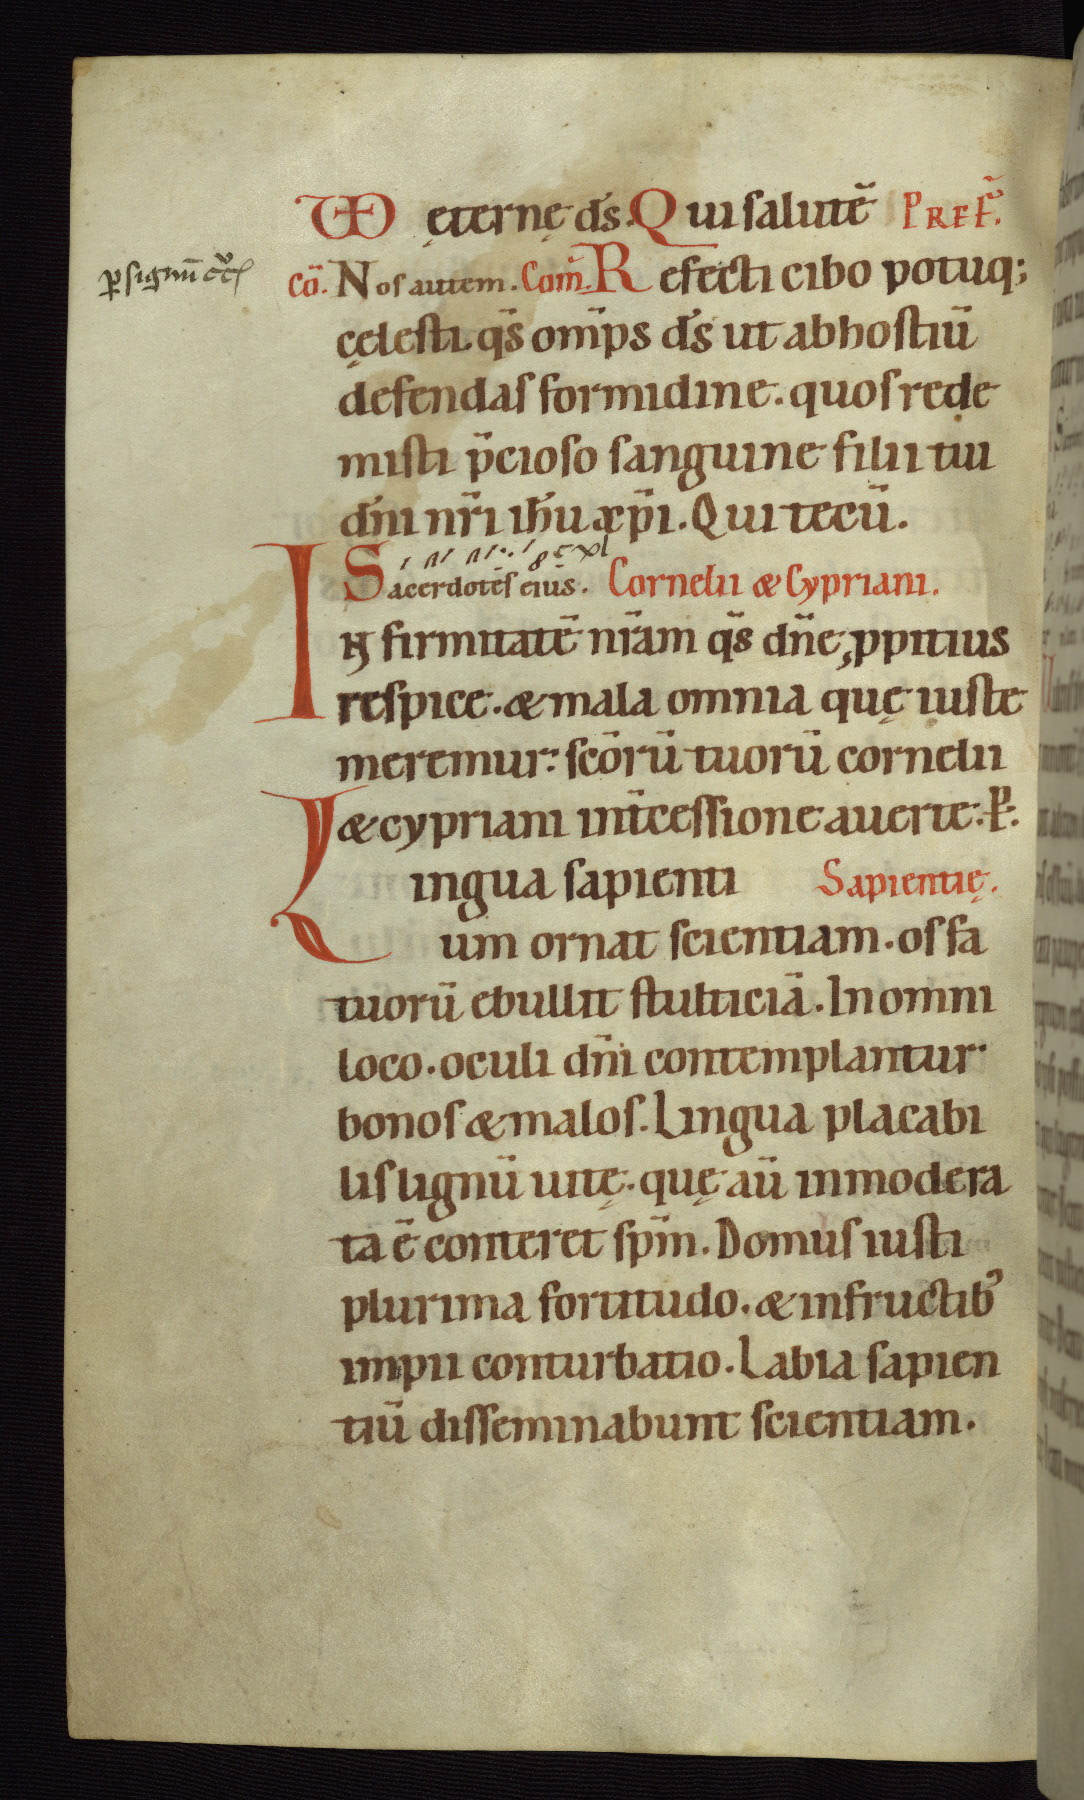 VD ęternę d̅s. Qui salutē PREF̅.
p̲ signū cr̅c̅
cō. Nos autem. Com̅. Refecti cibo potuq;
cęlesti. q̅s om̅ps d̅s ut ab hostiū
defendas formidine. quos rede
misti p̅cioso sanguine filii tui
d̅ni nr̅i ih̅u xp̅i. Qui tecū.
Sacerdotes eius. Cornelii & Cypriani.
IN firmitatē nr̅am q̅s dn̅e, ppitius
respice. & mala omnia quę iuste
meremur: sc̅orū tuorū cornelii
& cypriani int̅cessione auerte. P̲.
Lingua sapienti Sapientię.
um ornat scientiam. os fa
tuorū ebullit stulticiā. In omni
loco. oculi dn̅i contemplantur
bonos & malos. Lingua placabi
lis lignū uitę. quę aū inmodera
ta ē conteret sp̅m. Domus iusti
plurima fortitudo. & in fructib᾽
impii conturbatio. Labia sapien
tiū disseminabunt scientiam.